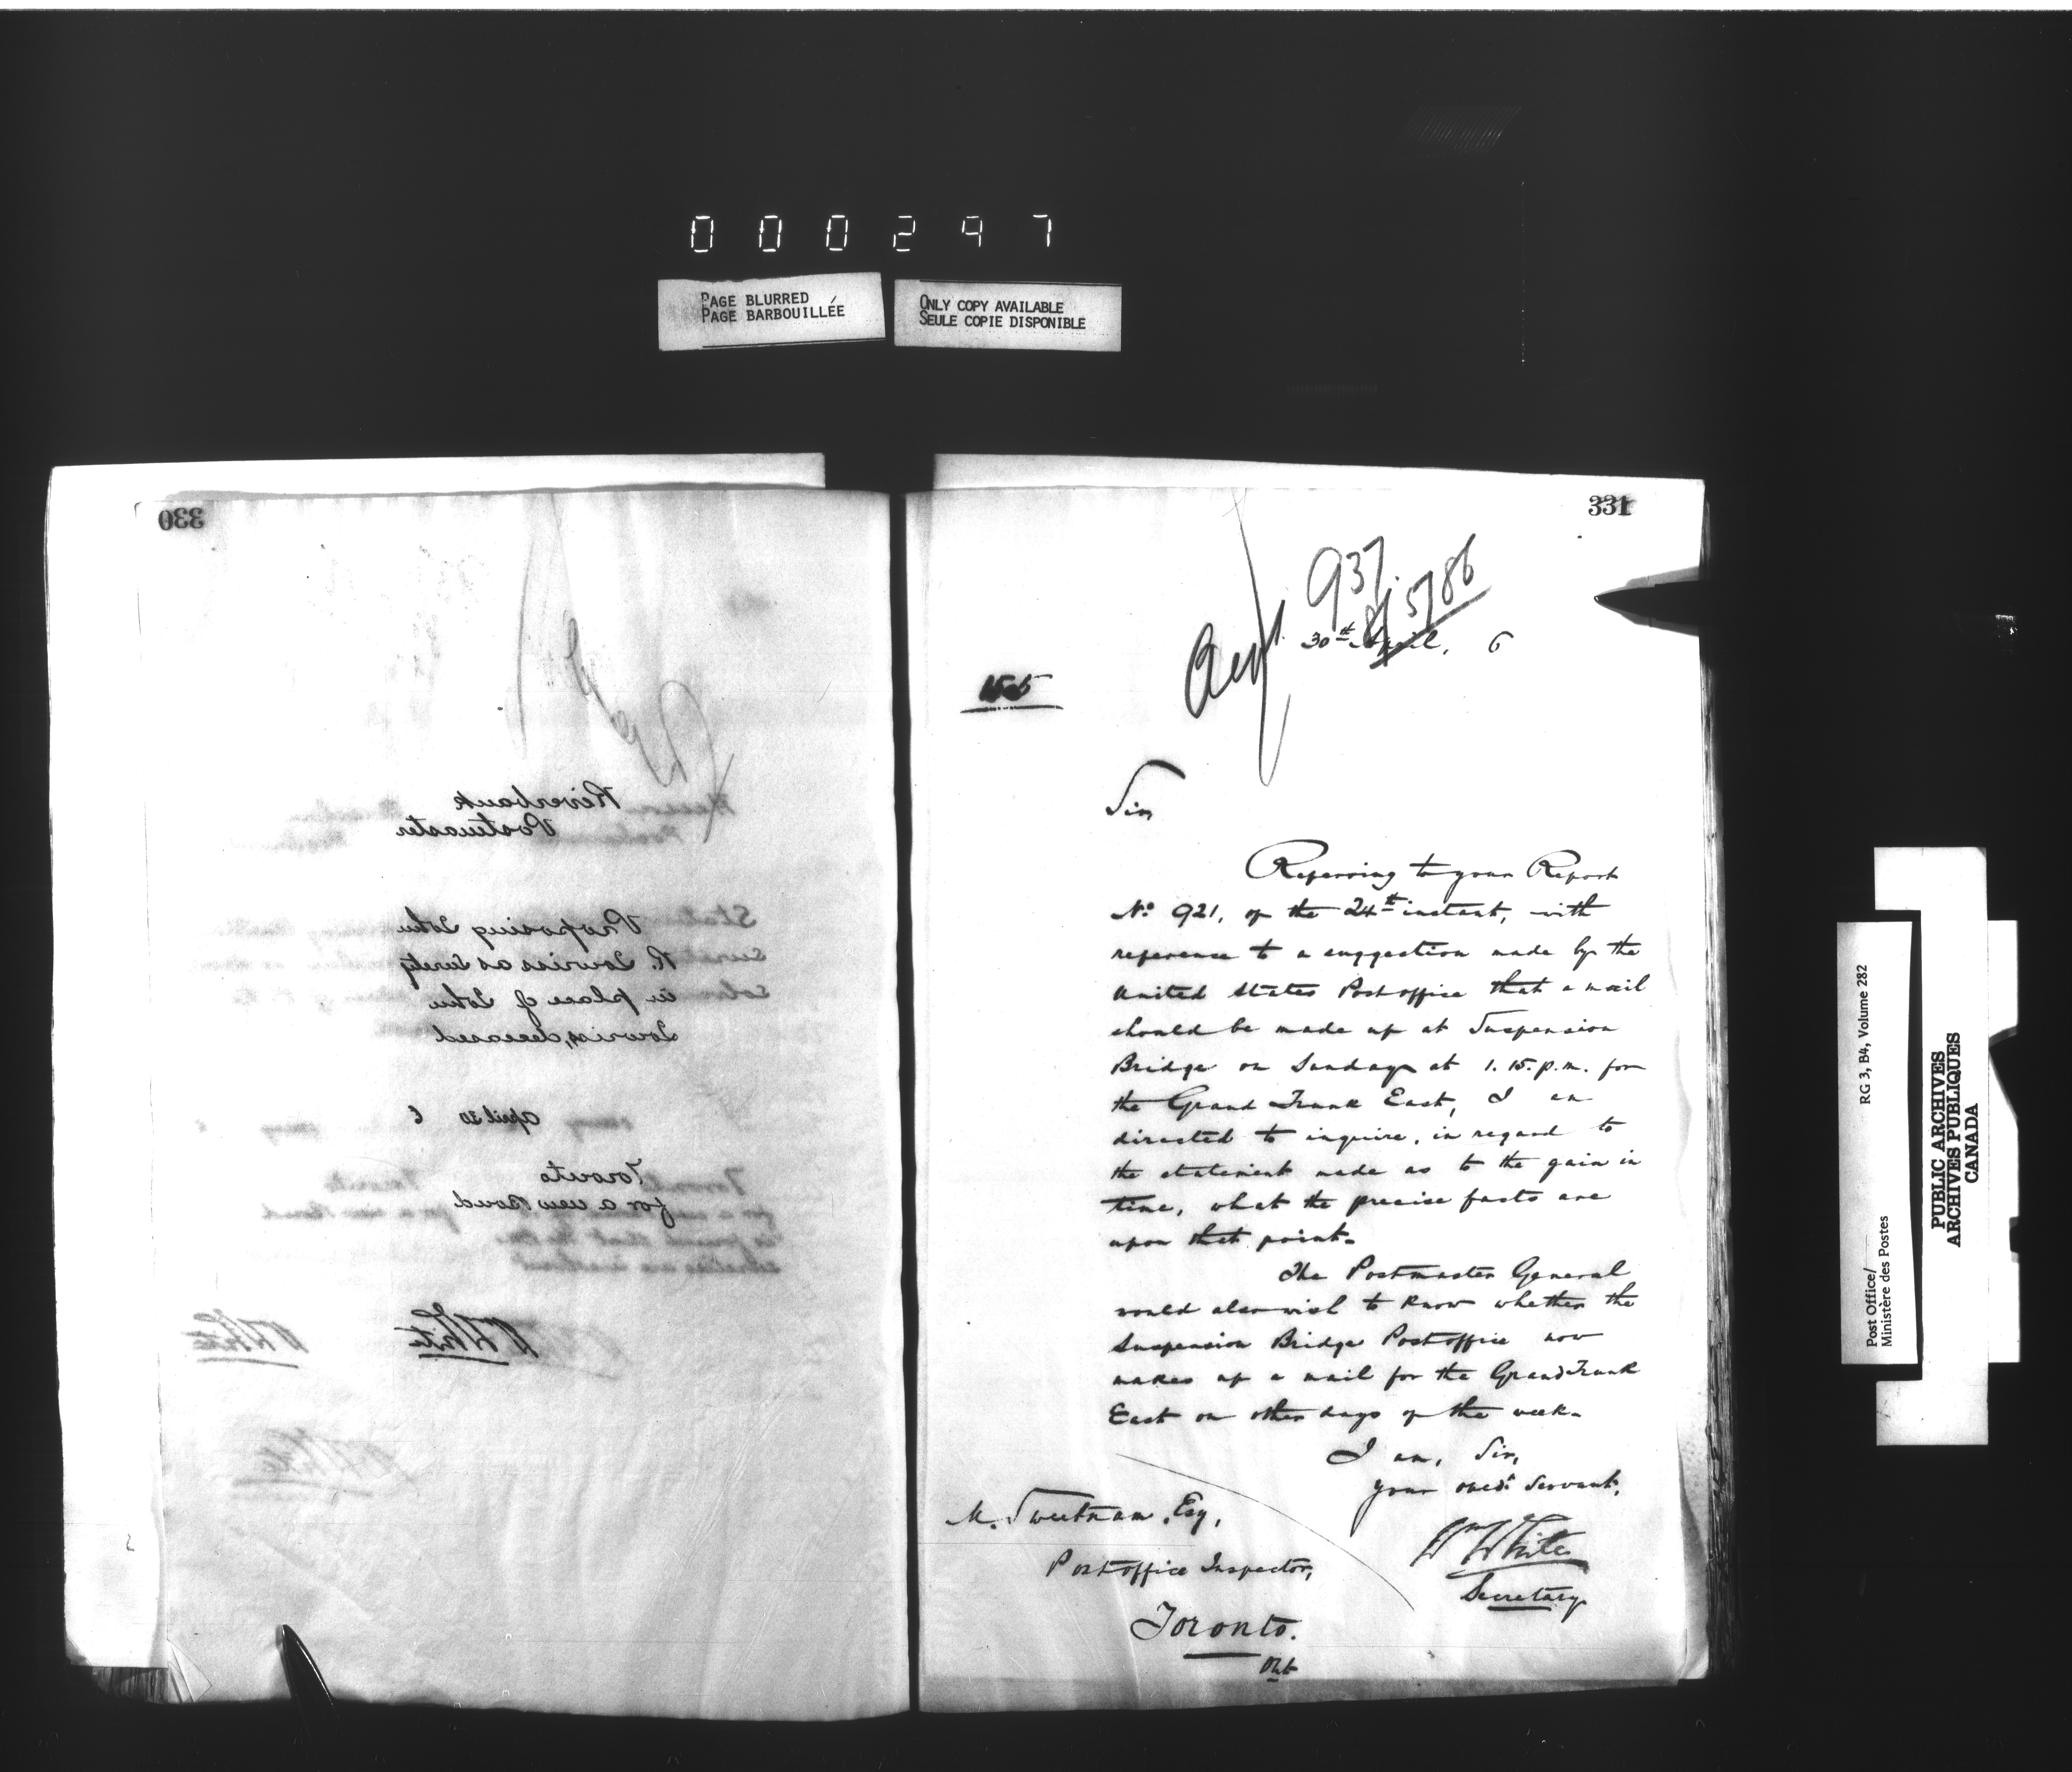 000297
PAGE BLURRED
PAGE BARBOUILLÉE
ONLY COPY AVAILABLE
SEULE COPIE DISPONIBLE
330
Riverbank
Postmaster
Proposing John
R. Lowriss as Surety
in place of John
Lowriss, deceased
April 30 6
Toronto
for a new Bond
WWhite
331
937
5786
30th April, 6
Sir,
Referring to your Report
No. 921, of the 24th instant, with
reference to a suggestion made by the
United States Postoffice that a mail
should be made up at Suspension
Bridge on Sunday at 1.15. p.m. for
the Grand Trunk East, I am
directed to inquire, in regard to
the statement made as to the gain in
time, what the precise facts are
upon that point.
The Postmaster General
would also wish to know whether the
Suspension Bridge Postoffice now
makes up a mail for the Grand Trunk
East on other days of the week.
I am, Sir,
Your obedt. Servant,
Wm White
Secretary
M. Sweetnam, Esq,
Postoffice Inspector,
Toronto.
Ont
Post Office/ RG 3, B4, Volume 282
Ministère des Postes
PUBLIC ARCHIVES
ARCHIVES PUBLIQUES
CANADA